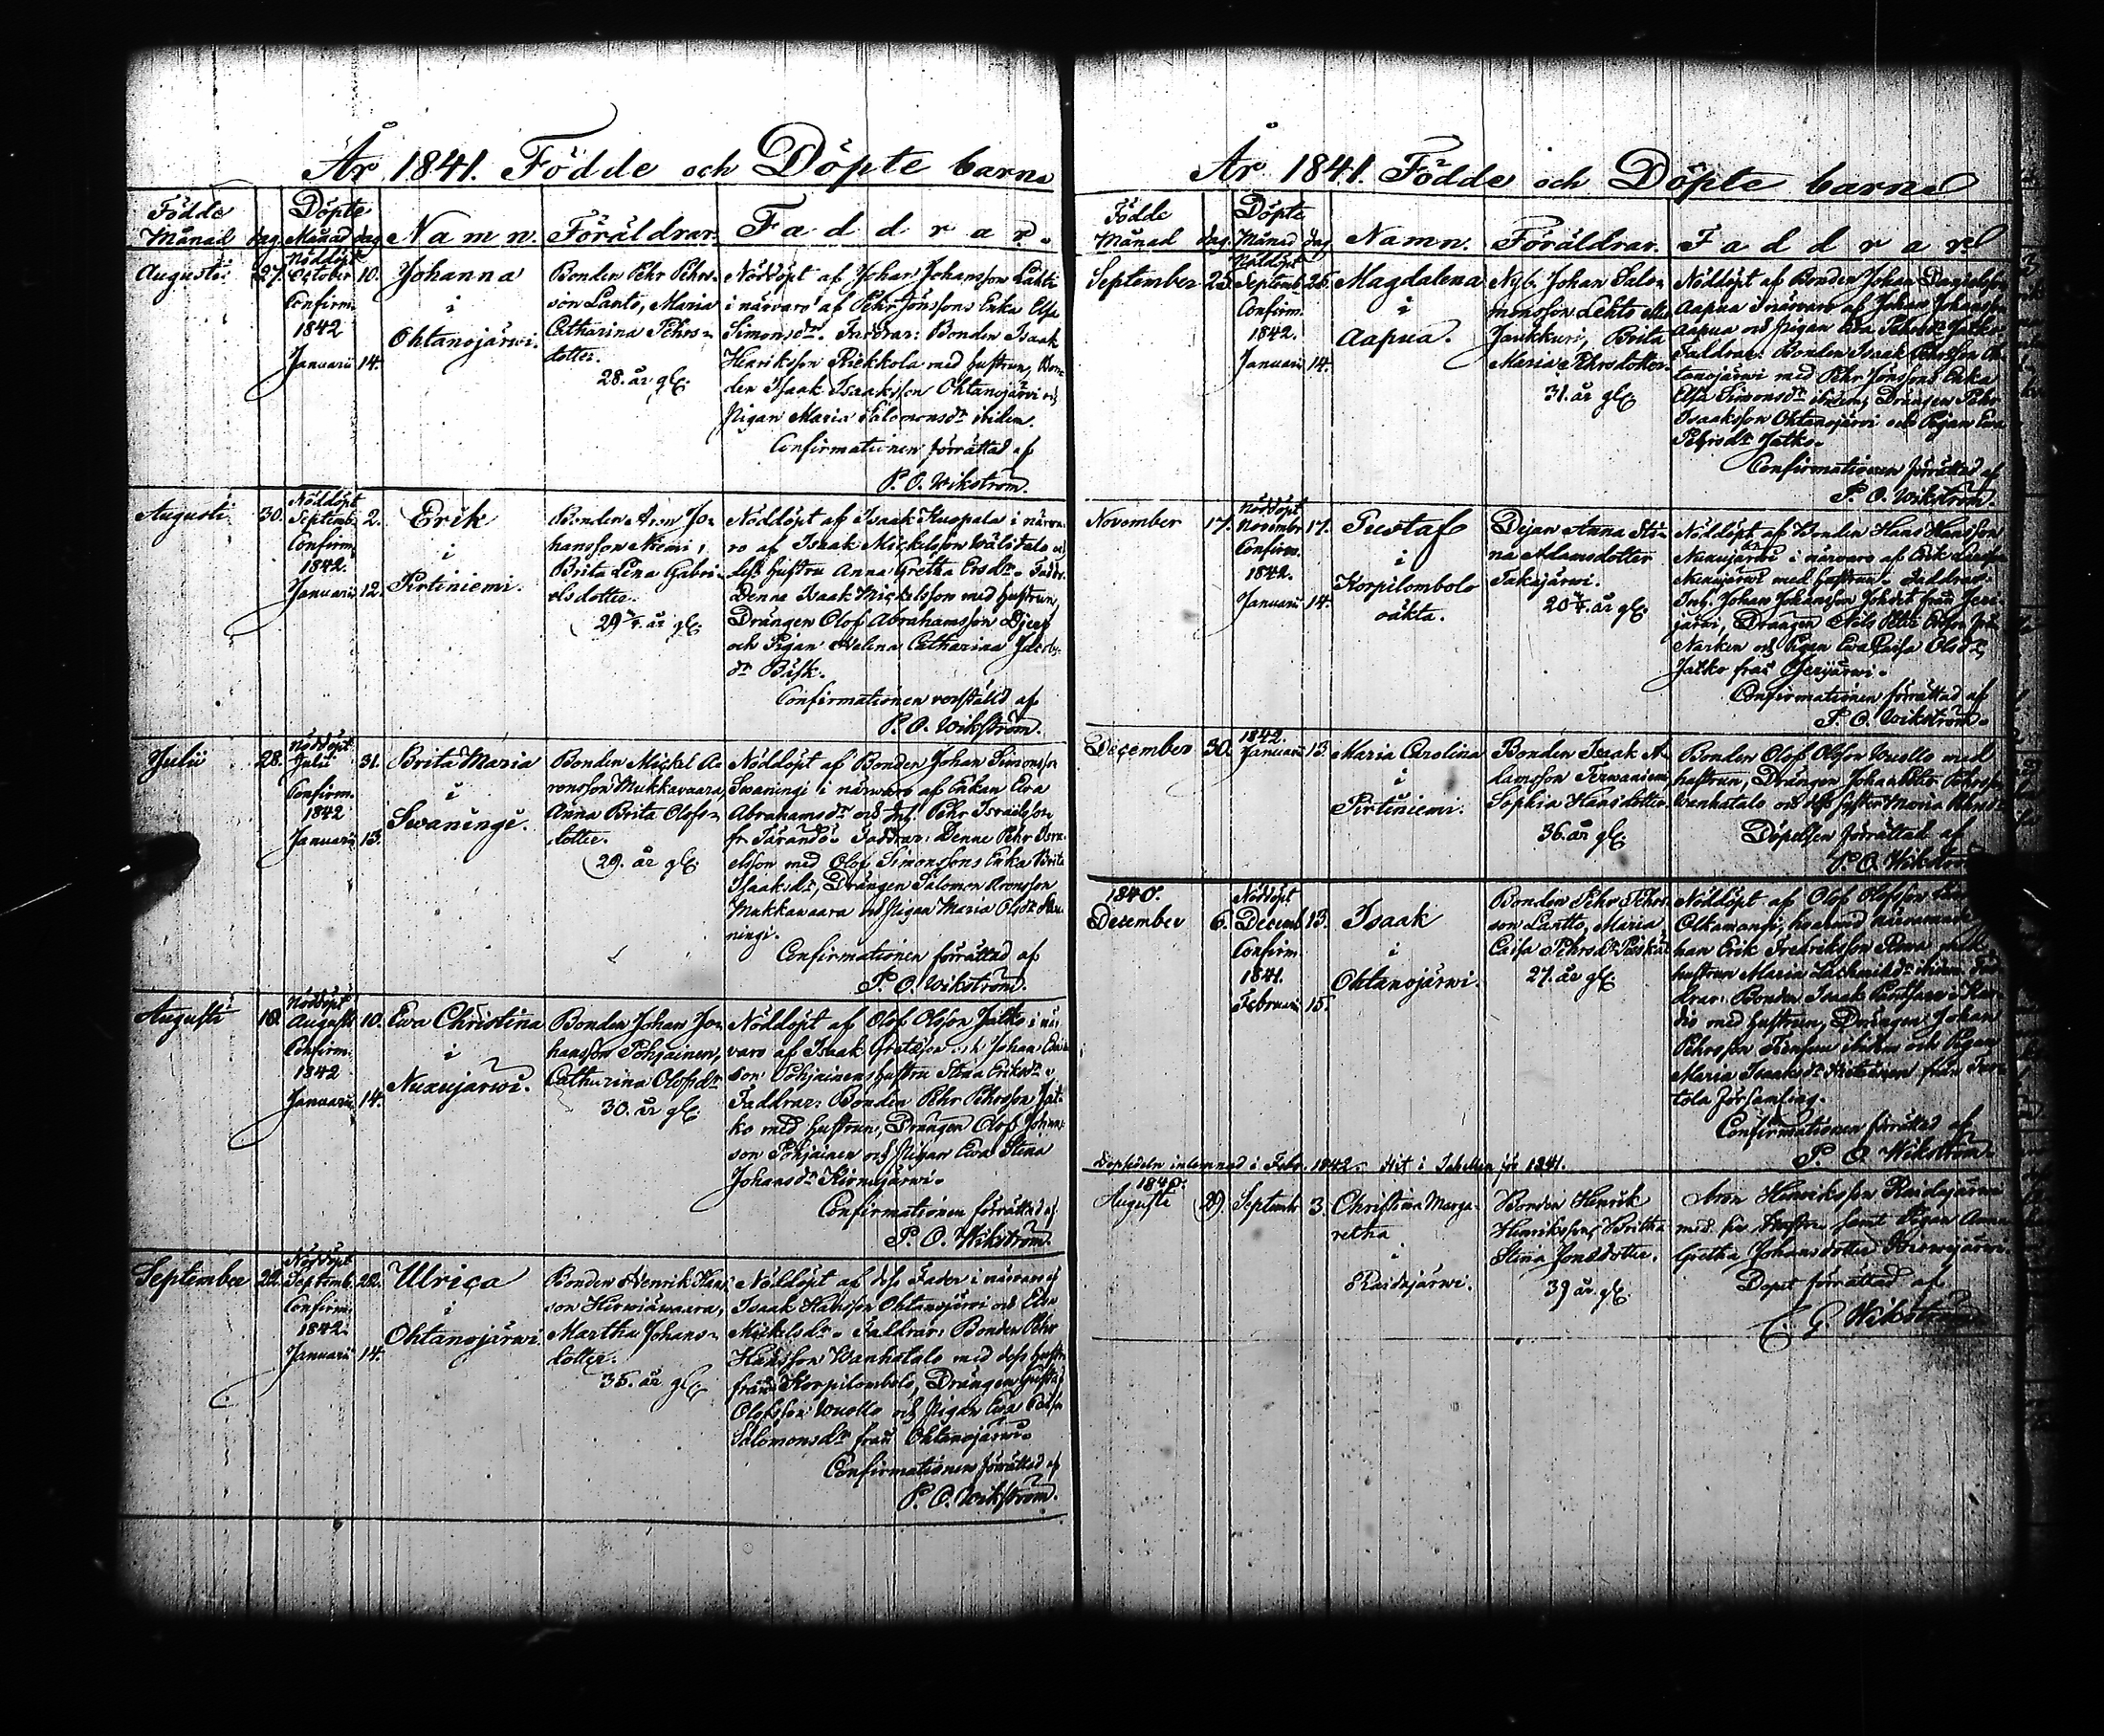 År 1841. Födde och Döpte barn
Födde Månad dag Döpte Månad dag Namn. Föräldrar. Faddrar.
Augusti 27. Nöddöpt October 10. Confirm. 1842 Januarii 14.
Johanna
i
Ohtanojärwi.
Bonden Pehr Pehrs-
son Lanto, Maria
Catharina Pehrs-
dotter.
28. år gl.
Nöddöpt af Johan Johansson Lahti
i närvaro af Pehr Jönssons Enka Elsa
Simonsdr. Faddrar: Bonden Isaak
Henriksson Riekkola med hustrun, Bon-
den Isaak Isaaksson Ohtanojärvi och
Pigan Maria Salomonsdr ibidem.
Confirmationen förrättad af
P. O. Wikström.
Augusti 30. Nöddöpt Septemb. 2. Confirm. 1842. Januarii 12.
Erik
i
Pirtiniemi.
Bonden Aron Jo-
hansson Niemi,
Brita Lena Gabri-
elsdotter.
29 år gl.
Nöddöpt af Isaak Kuopala i närva-
ro af Isaak Mickelsson och
dess hustru Anna Gretha Ersdr. Faddr.
Denne Isaak Mickelsson med hustrun,
Drängen Olof Abrahamsson
och Pigan Helena Catharina Jacobs-
dr Bäsk.
Confirmationen verställd af
P. O. Wikström.
Julii 28. Nöddöpt Julii 31. Confirm. 1842 Januarii 13.
Brita Maria
i
Swaningi.
Bonden Mickel Aa-
ronsson Mukkavaara,
Anna Brita Olofs-
dotter.
29. år gl.
Nöddöpt af Bonden Johan Simonsson
Swaningi i närvaro af Enkan Eva
Abrahamsdr och Inh. Pehr Israelsson
fr. Tärändö. Faddrar: Denne Pehr Isra-
elsson med Olof Simonssons Enka Brita
Isaaksdr, Drängen Salomon Aronsson
Mukkavaara och Pigan Maria Olsdr Swa-
ningi.
Confirmationen förrättad af
P. O. Wikström.
Augusti 10. Nöddöpt Augusti 10. Confirm. 1842 Januarii 14.
Ewa Christina
i
Nuuujärwi.
Bonden Johan Jo-
hansson Pohjainen,
Catharina Olofsdr
30. år gl.
Nöddöpt af Olof Olsson Jatko i när-
varo af Isaak och Johan
son Pohjainens hustru Stina Eriksdr.
Faddrar: Bonden Pehr Pehrsson Jat-
ko med hustrun, Drängen Olof Johans-
son Pohjainen och Pigan Ewa Stina
Johansdr Kirnujärvi.
Confirmationen förrättad af
P. O. Wikström.
September 22. Nöddöpt Septemb. 22. Confirm. 1842. Januarii 14.
Ulrica
i
Ohtanojärwi.
Bonden Henrik Hans-
son Hirwiäwaara,
Martha Johans-
dotter.
35. år gl.
Nöddöpt af dess Fader i närvaro af
Isaak Hansson Ohtanojärvi och Elsa
Mickelsdr. Faddrar: Bonden Pehr
Hansson Wanhatalo med dess hustru
från Korpilombolo, Drängen Gustaf
Olofsson Wuollo och Pigan Ewa
Salomonsdr från Ohtanojärwi.
Confirmationen förrättad af
P. O. Wikström.
År 1841. Födde och Döpte barn
Födde Månad dag. Döpte Månad dag Namn. Föräldrar. Faddrar
September 25. Nöddöpt Septemb. 26. Confirm. 1842. Januarii 14.
Magdalena
i
Aapua.
Nyb. Johan Salo-
monsson Lehto
Jaukkuri, Brita
Maria Pehrsdotter.
31. år gl.
Nöddöpt af Bonden Johan Danielsson
Aapua i närvaro af Johan Johansson
Aapua och Pigan Eva Pehrsdr Jatko.
Faddrar: Bonden Isaak Pehrsson Oh-
tanojärwi med Pehr Jönssons Enka
Elsa Simonsdr ibidem, Drängen Pehr
Isaaksson Ohtanojärvi och Pigan Ewa
Pehrsdr Jatko.
Confirmationen förrättad af
P. O. Wikström.
November 17. Nöddöpt Novembr. 17. Confirm. 1842. Januarii 14.
Gustaf
i
Korpilombolo
oäkta.
Dejan Anna Sti-
na Adamsdotter
Takajärwi.
20 år gl.
Nöddöpt af Bonden Hans Hansson
i närvaro af Erik
med hustrun. Faddrar:
Inh. Johan Johansson från Jeri-
järwi, Drängen Nils Petter Ersson från
Narken och Pigan Ewa Caisa Olsdr
Jatko från Jerijärwi.
Confirmationen förrättad af
P. O. Wikström.
December 30. 1842. Januarii 13.
Maria Carolina
i
Pirtiniemi.
Bonden Isaak A-
damsson Terwaniemi,
Sophia Hansdotter
36. år gl.
Bonden Olof Olsson Wuollo med
hustrun, Drängen Johan Petter Pehrsson
Wanhatalo och dess syster Maria
Döpelsen förrättad af
P. O. Wikström
1840.
December 6. Nöddöpt Decemb. 13. Confirm. 1841. Februarii 15.
Isaak
i
Ohtanojärwi.
Bonden Pehr Pehrs-
son Lantto, Maria
Caisa Pehrsdr
27. år gl.
Nöddöpt af Olof Olofsson
han Erik Fredriksson Rowa med
hustrun Maria ibidem. Fad-
drar: Bonden Isaak
med hustrun, Drängen Johan
Pehrsson ibidem och Pigan
Maria Isaaksdr från Tur-
tola församling.
Confirmationen förrättad af
P. O. Wikström
Dopsedeln inlemnad i Febr. 1842.
1840.
Augusti 29. Septembr 3.
Christina Marga-
retha
i
Raidajärwi.
Bonden Henrik
Henriksson, Britha
Stina Jonsdotter.
39 år gl.
Aron Henriksson Raidajärwi
med sin Hustru samt Pigan Anna
Gretha Johansdotter
Dopet förrättad af
C. G. Wikström